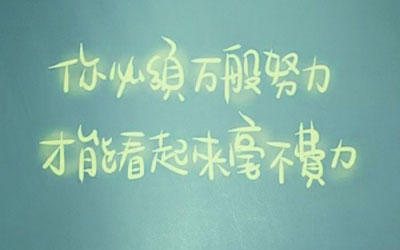 你必須万般努力
才能看起來毫不費力